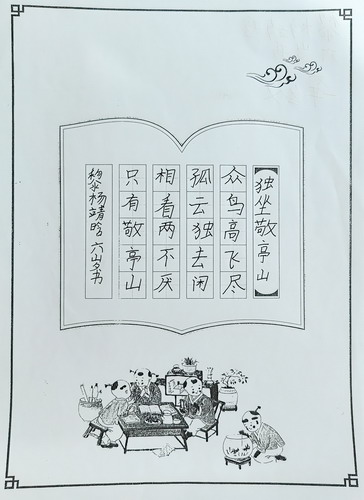 独坐敬亭山
众鸟高飞尽
孤云独去闲
相看两不厌
只有敬亭山
杨靖晗 六山 书